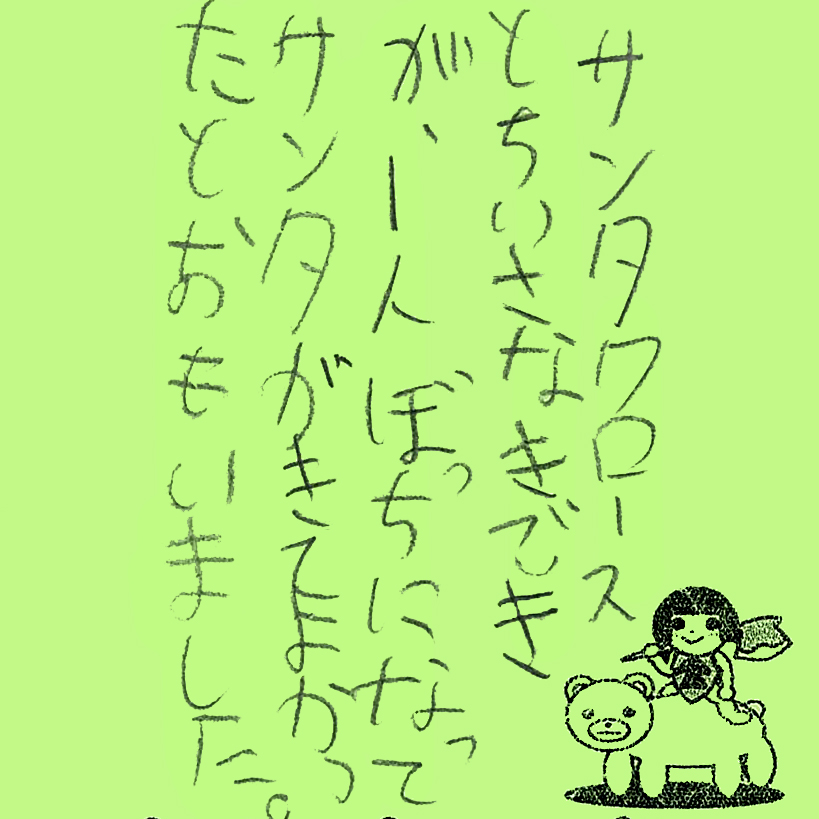 サンタクロース
とちいさなきでき
が、一人ぼっちになって
サンタがきてよかっ
たとおもいました。